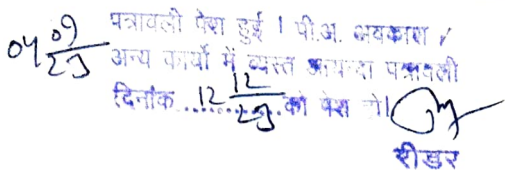 04 09/23 पत्रावली पेश हुई । पी.अ. अवकाश /
अन्य कार्यो में व्यस्त आयन्दा पत्रावली
दिनांक 12 12/23 को पेश हो।
रीडर